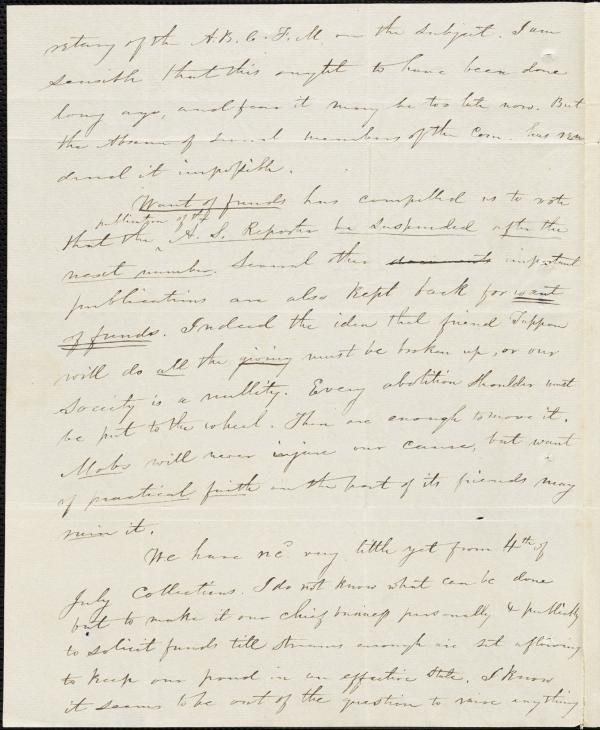 retary of the A.B.C.F.M on the subject. I am
sensible that this ought to have been done
long ago, and fear it may be too late now. But
the absence of several members of the Com. has ren
dered it impossible.
Want of funds has compelled us to vote
publication of the
that the A. S. Reporter be suspended after the
next number. Several other documents important
publications are also kept back for want
of funds. Indeed the idea that friend Tappan
will do all the giving must be broken up, or our
Society is a nullity. Every abolition shoulder must
be put to the wheel. There are enough to move it.
Mobs will never injure our cause, but want
of practical faith on the part of its friends may
ruin it.
We have recd very little yet from 4th of
July Collections. I do not know what can be done
but to make it our chief business personally & publickly
to solicit funds till streams enough are set a flowing
to keep our pond in an effective state. I know
it seems to be out of the question to raise anything